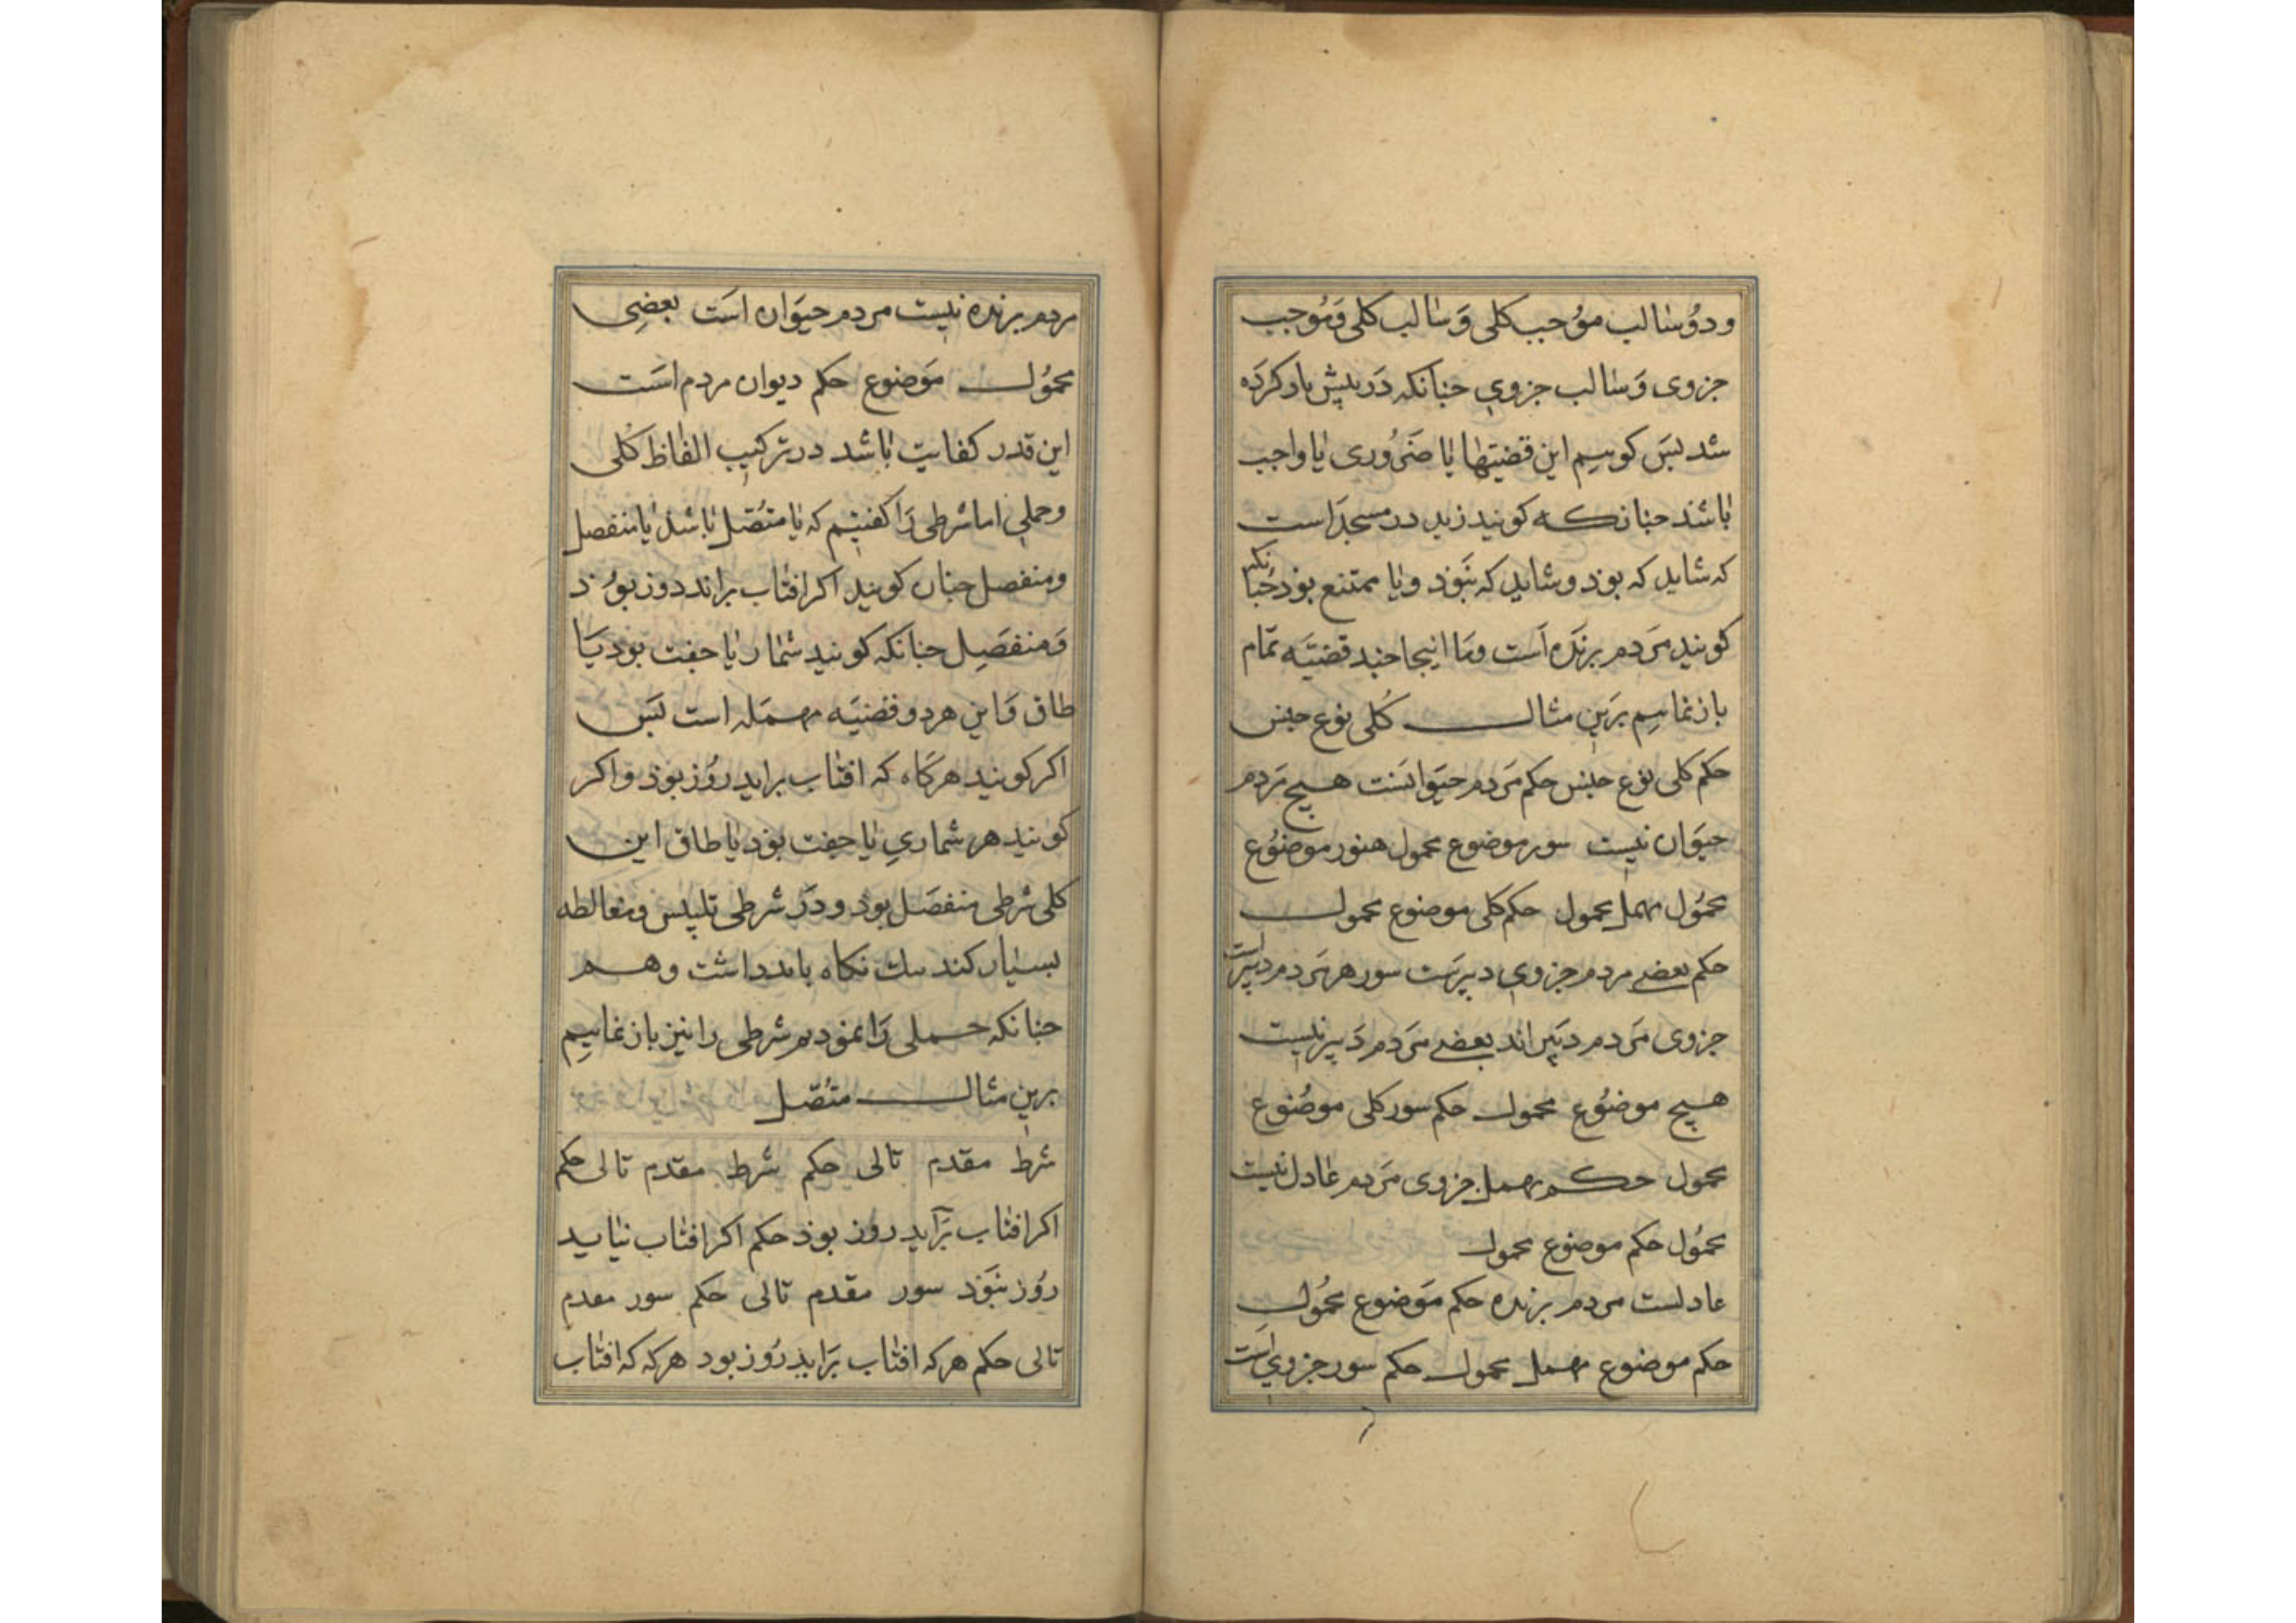 ودو سالب موجب کلی و سالب کلی و موجب
جزوی و سالب جزوی جنانکه در پیش یاد کرده
شد پس کوییم این قضیتها یا ضروری یا واجب
باشد جنانکه کویند زید در مسجد است
که شاید که بوذ و شاید که نبوذ و یا ممتنع بوذ جنانکه
کویند مردم برنده است وما اینجا جند قضیه تمام
باز نماییم برین مثال کلی نوع جنس
حکم کلی نوع جنس حکم مردم حیوانست هیج مردم
حیوان نیست سور موضوع محمول موضوع
محمول مهمل محمول حکم کلی موضوع محمول
حکم بعضے مردم جزوی دبیرست سور هر مردم دبیراست
جزوی مردم دبیر اند بعضے مردم دبیر نیست
هیج موضوع محمول حکم سور کلی موضوع
محمول حکم مهمل جزوی مردم عادل نیست
محمول حکم موضوع محمول
عادلست مردم برنده حکم موضوع محمول
حکم موضوع مهمل محمول حکم سور جزوی است
مردم برنده نیست مردم حیوان است بعضی
محمول موضوع حکم دیوان مردم است
این قدر کفایت باشد در ترکیب الفاظ کلی
وحملی اما شرطی را کفتیم که یا متصل باشد یا منفصل
ومنفصل جنان کویند اکر افتاب براند روز بوذ
و منفصل جنانکه کویند شمار یا جفت بوذ یا
طاق و این هر دو قضیه مهمله است پس
اکر کویند هرکاه که افتاب براید روز بوذ واکر
کویند هر شماری یا جفت بوذ یا طاق این
کلی شرطی منفصل بوذ و در شرطی تلبیس ومغالطه
بسیار کند نکاه باید داشت وهم
جنانکه حملی را نموذیم شرطی را نیز باز نماییم
برین مثال متصل
شرط مقدم تالی حکم شرط مقدم تالی حکم
اکر افتاب براید روز بوذ حکم اکر افتاب نیاید
روز نبوذ سور مقدم تالی حکم سور مقدم
تالی حکم هرکه افتاب براید روز بود هرکه که افتاب